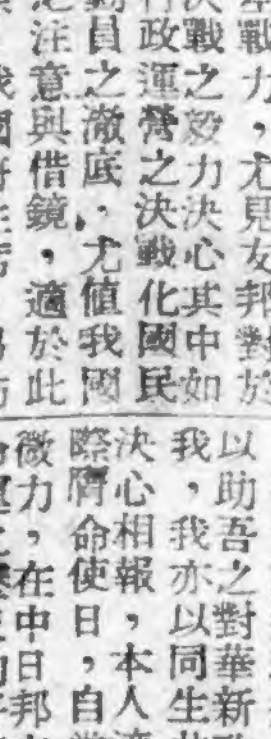 戰力，尤見友邦對於
決戰之毅力決心其中如
政運營之決戰化國民
動員之澈底，尤值我國
注意與借鏡，適於此
以助吾之對華新
我，我亦以同生
決心相報，本人
際膺命使日，自
微力，在中日邦